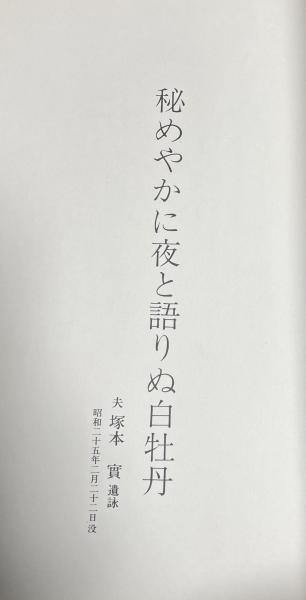 秘めやかに夜と語りぬ白牡丹
夫 塚本 實 遺詠
昭和二十五年二月二十二日没